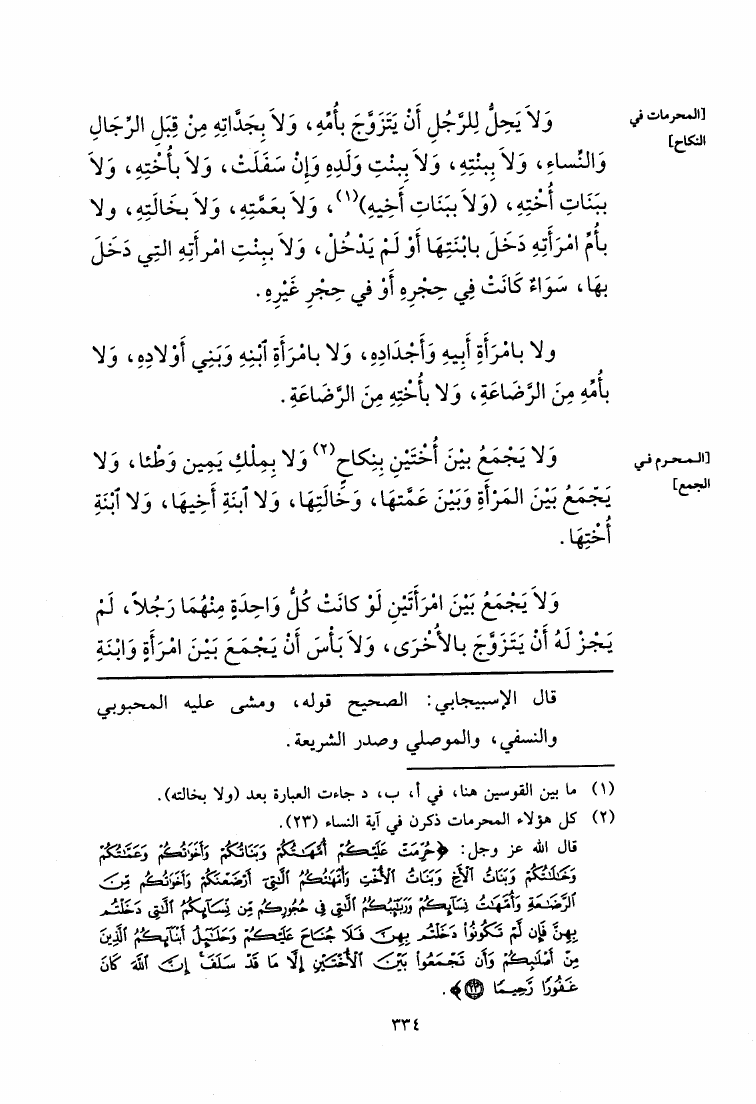 [المحرمات في
النكاح]
وَلاَ يَحِلُّ لِلرَّجُلِ أَنْ يَتَزَوَّجَ بأُمِّهِ، وَلاَ بِجَدَّاتِهِ مِنْ قِبَلِ الرِّجَالِ
وَالنِّساءِ، وَلاَ بِبِنْتِهِ، وَلاَ بِبِنْتِ وَلَدِهِ وَإِنْ سَفَلَتْ، وَلاَ بأُخْتِهِ، وَلاَ
ببَنَاتِ أُخْتِهِ، (وَلاَ ببَنَاتِ أَخِيهِ)(١)، وَلاَ بعَمَّتِهِ، وَلاَ بخَالَتِهِ، ولا
بأُمِّ امْرَأَتِهِ دَخَلَ بابْنَتِهَا أَوْ لَمْ يَدْخُلْ، وَلاَ ببِنْتِ امْرأتِهِ التِي دَخَلَ
بهَا، سَوَاءٌ كَانَتْ فِي حِجْرِهِ أَوْ في حِجْرِ غَيْرِهِ.
ولا بامْرَأَةِ أَبِيهِ وَأَجْدَادِهِ، وَلاَ بامْرَأَةِ ٱبْنِهِ وَبَنِي أَوْلاَدِهِ، وَلاَ
بأُمِّهِ مِنَ الرَّضَاعَةِ، وَلاَ بأُخْتِهِ مِنَ الرَّضَاعَةِ.
[المحرم في
الجمع]
وَلاَ يَجْمَعُ بَيْنَ أُخْتَيْنِ بِنِكَاحٍ(٢) وَلاَ بِمِلْكِ يَمِين وَطْئا، وَلاَ
يَجْمَعُ بَيْنَ المَرْأَةِ وَبَيْنَ عَمَّتهَا، وَخَالَتِهَا، وَلاَ ٱبنَةِ أَخِيهَا، وَلا ٱبْنَةِ
أُخْتِهَا.
وَلاَ يَجْمَعُ بَيْنَ امْرَأَتَيْنِ لَوْ كانَتْ كُلُّ وَاحِدَةٍ مِنْهُمَا رَجُلاً، لَمْ
يَجْز لَهُ أَنْ يَتَزَوَّجَ بالأُخْرَى، وَلاَ بَأْسَ أَنْ يَجْمَعَ بَيْنَ امْرأةٍ وَابْنَةِ
قال الإسبيجابي: الصحيح قوله، ومشى عليه المحبوبي
والنسفي، والموصلي وصدر الشريعة.
(١) ما بين القوسين هنا، في أ، ب، د جاءت العبارة بعد (ولا بخالته).
(٢) كل هؤلاء المحرمات ذكرن في آية النساء (٢٣).
قال الله عز وجل: ﴿حُرِّمَتْ عَلَيْكُمْ أُمَّهَٰتُكُمْ وَبَنَاتُكُمْ وَأَخَوَٰتُكُمْ وَعَمَّٰتُكُمْ
وَخَٰلَٰتُكُمْ وَبَنَاتُ ٱلْأَخِ وَبَنَاتُ ٱلْأُخْتِ وَأُمَّهَٰتُكُمُ ٱلَّٰتِىٓ أَرْضَعْنَكُمْ وَأَخَوَٰتُكُم مِّنَ
ٱلرَّضَٰعَةِ وَأُمَّهَٰتُ نِسَآئِكُمْ وَرَبَٰٓئِبُكُمُ ٱلَّٰتِى فِى حُجُورِكُم مِّن نِّسَآئِكُمُ ٱلَّٰتِى دَخَلْتُم
بِهِنَّ فَإِن لَّمْ تَكُونُوا۟ دَخَلْتُم بِهِنَّ فَلَا جُنَاحَ عَلَيْكُمْ وَحَلَٰٓئِلُ أَبْنَآئِكُمُ ٱلَّذِينَ
مِنْ أَصْلَٰبِكُمْ وَأَن تَجْمَعُوا۟ بَيْنَ ٱلْأُخْتَيْنِ إِلَّا مَا قَدْ سَلَفَ إِنَّ ٱللَّهَ كَانَ
غَفُورًا رَّحِيمًا ۝٢٣﴾.
٣٣٤